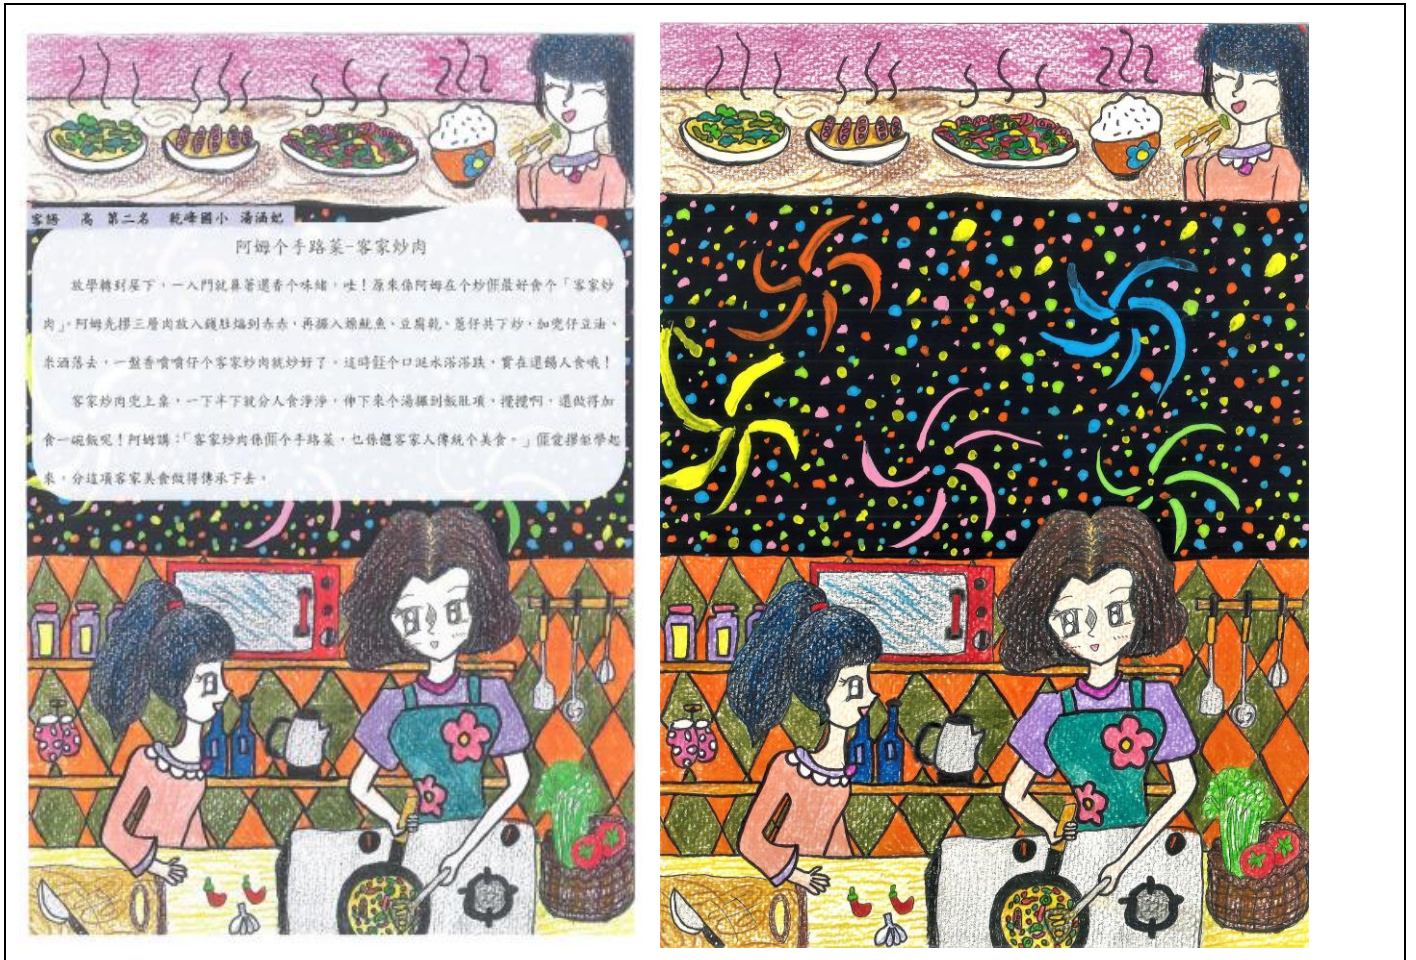 客語　高　第二名　乾峰國小　湯涵妃
阿姆个手路菜-客家炒肉
放學轉到屋下，一入門就鼻著還香个味緒，哇！原來係阿姆在个炒𠊎最好食个「客家炒
肉」。阿姆先摎三層肉放入鑊肚煏到赤赤，再摝入鰇魷魚、豆腐乾、蔥仔共下炒，加兜仔豆油、
米酒落去，一盤香噴噴仔个客家炒肉就炒好了。這時𠊎个口涎水溶溶跌，實在還餳人食哦！
客家炒肉兜上桌，一下半下就分人食淨淨，伸下來个湯摝到飯肚項，攪攪啊，還做得加
食一碗飯呢！阿姆講：「客家炒肉係𠊎个手路菜，也係𠊎客家人傳統个美食。」𠊎愛摎佢學起
來，分這項客家美食做得傳承下去。